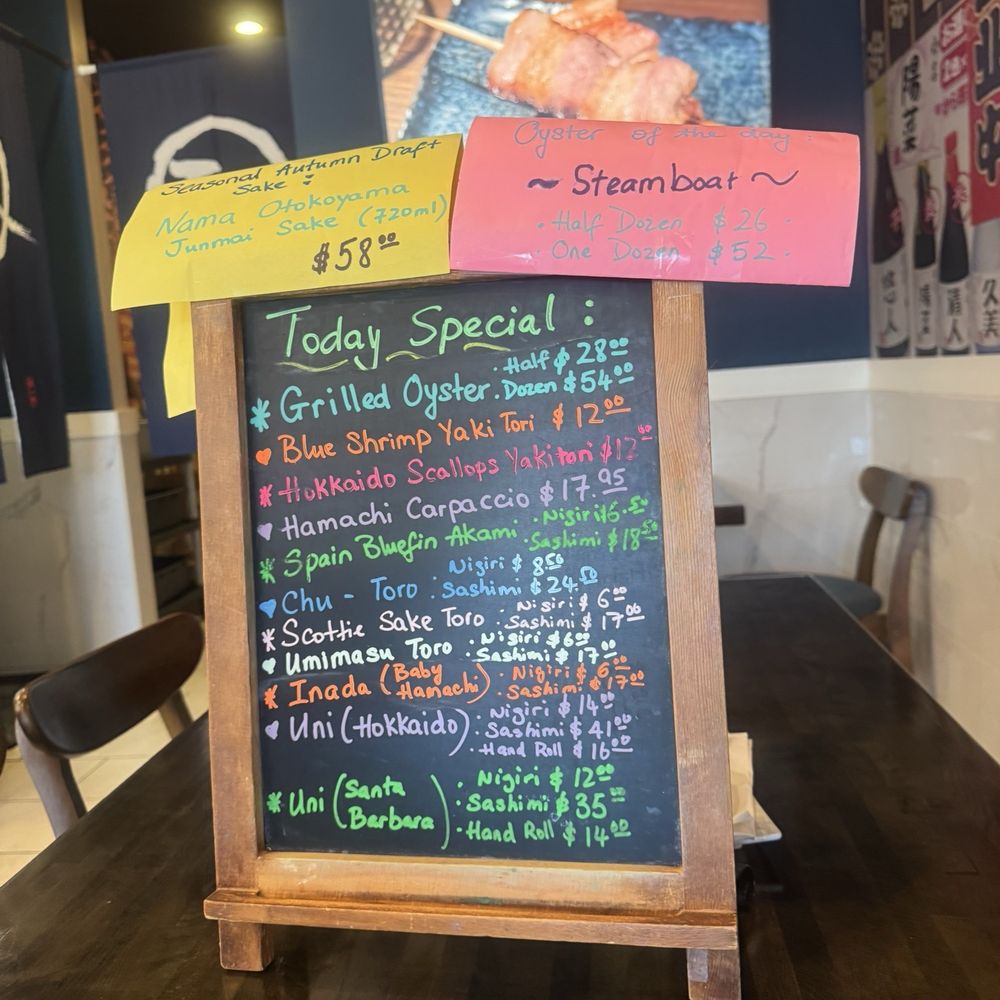 Seasonal Autumn Draft
Sake :
Nama Otokoyama
Junmai Sake (720ml)
$58.00
Oyster of the day :
~ Steamboat ~
· Half Dozen $26 ·
· One Dozen $52 ·
Today Special :
Grilled Oyster · Half $28.00
· Dozen $54.00
Blue Shrimp Yaki Tori $12.00
Hokkaido Scallops Yakitori $12
Hamachi Carpaccio $17.95
Spain Bluefin Akami · Nigiri $6.50
· Sashimi $18.50
Chu - Toro · Nigiri $8.50
· Sashimi $24.50
Scottie Sake Toro · Nigiri $6.00
· Sashimi $17.00
Umimasu Toro · Nigiri $6.00
· Sashimi $17.00
Inada (Baby Hamachi) · Nigiri $6.00
· Sashimi $17.00
Uni (Hokkaido) · Nigiri $14.00
· Sashimi $41.00
· Hand Roll $16.00
Uni (Santa Barbara) · Nigiri $12.00
· Sashimi $35.00
· Hand Roll $14.00
陽
久美